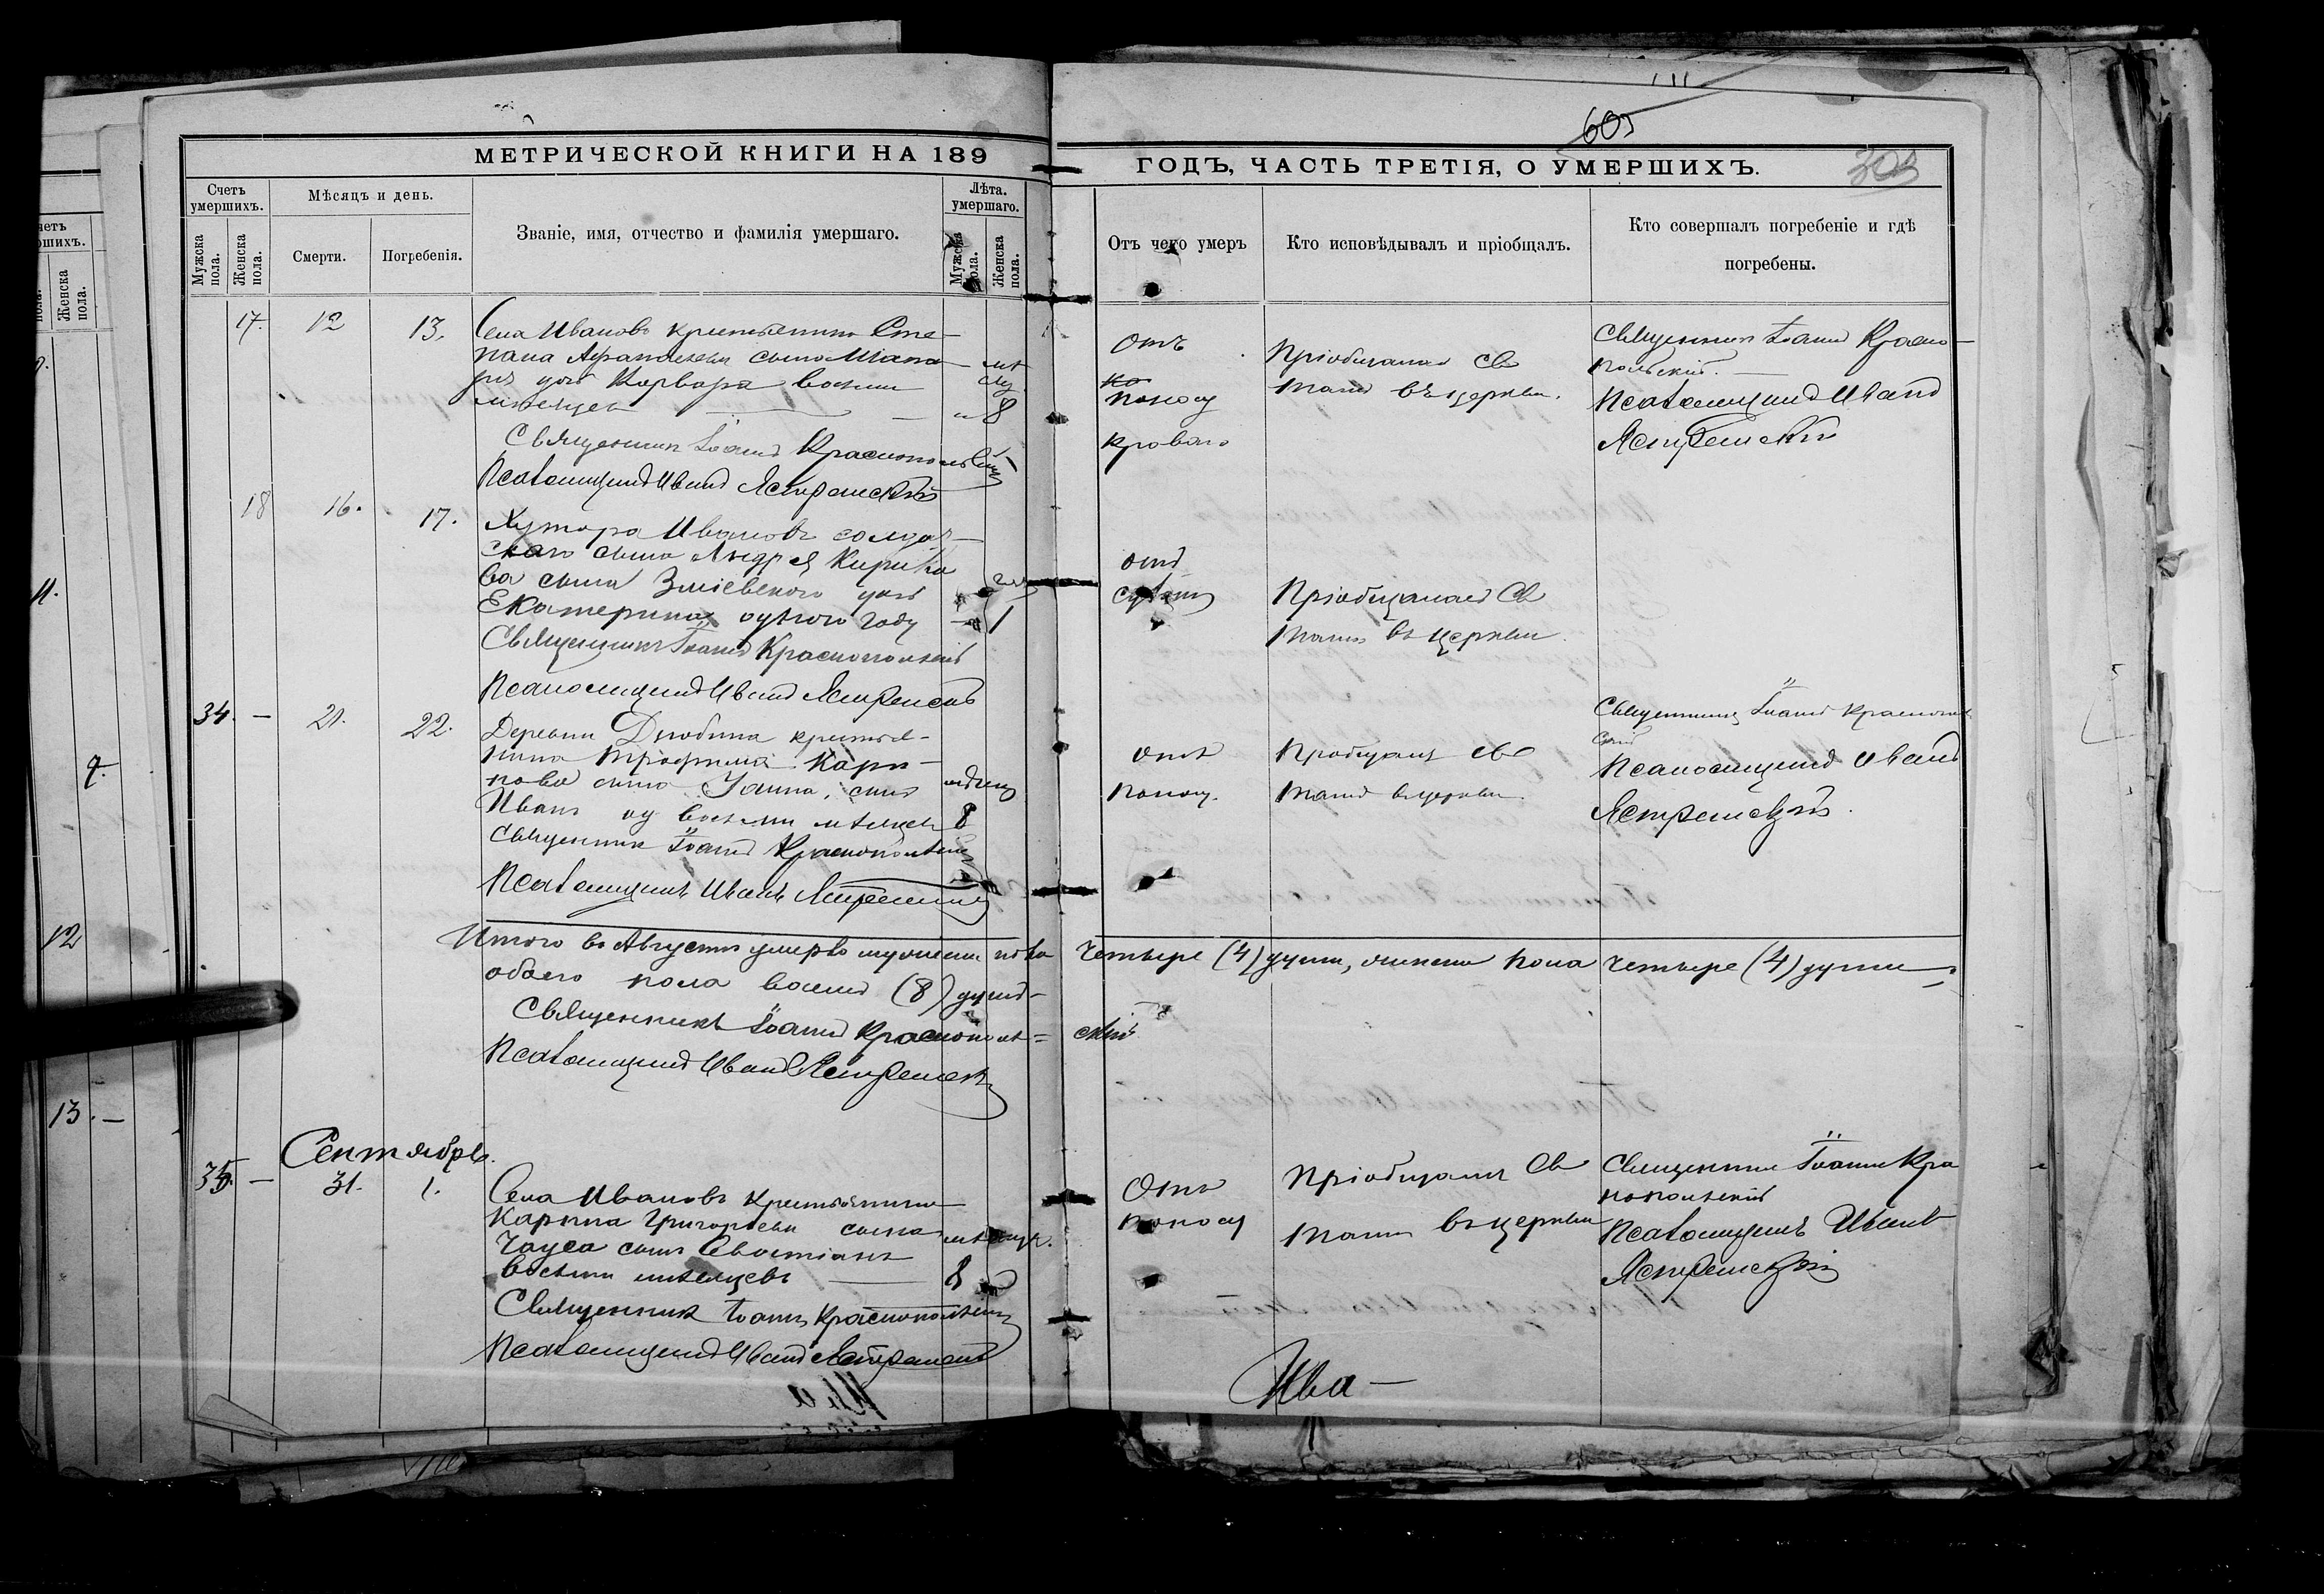 605
МЕТРИЧЕСКОЙ КНИГИ НА 189
ГОДЪ, ЧАСТЬ ТРЕТІЯ, О УМЕРШИХЪ.
303
Счетъ умершихъ.
Мужска пола.
Женска пола.
Мѣсяцъ и день.
Смерти.
Погребенія.
Званіе, имя, отчество и фамилія умершаго.
Лѣта. умершаго.
Мужска пола.
Женска пола.
Отъ чего умеръ
Кто исповѣдывалъ и пріобщалъ.
Кто совершалъ погребеніе и гдѣ
погребены.
17. 12 13.
Села Ивановъ крестьянина Сте-
пана сына
дочь Варвара восьми
мѣсяцевъ 8
Священникъ Іоаннъ Краснопольскій
Псаломщикъ Иванъ Ястремскій
Отъ
поносу
кроваго
Пріобщалась Св
таин въ церкви.
Священникъ Іоаннъ Красно-
польскій.
Псаломщикъ Иванъ
Ястремскій
18 16. 17.
Хутора Ивановъ солдат-
скаго сына Андрея Кирило
ва сына Зміевского дочь
Екатерина одного году 1
Священникъ Іоаннъ Краснопольскій
Псаломщикъ Иванъ Ястремскій
отъ
Пріобщалась Св
таин въ церкви.
34. — 21. 22.
Деревни крестья-
нина Трофима Карпо-
ва сына сынъ
Иванъ восьми мѣсяцевъ 8
Священникъ Іоаннъ Краснопольскій
Псаломщикъ Иванъ Ястремскій
отъ
поносу.
Пріобщалъ Св
таин въ церкви.
Священникъ Іоаннъ Краснополь
скій
Псаломщикъ Иванъ
Ястремскій.
Итого въ Августѣ умерло мужеска пола четыре (4) души, женска пола четыре (4) души,
обоего пола восемь (8) душъ
Священникъ Іоаннъ Краснополь=скій
Псаломщикъ Иванъ Ястремскій
Сентябрь.
35. — 31. 1.
Села Ивановъ крестьянина
Карпа Григорьева сына
Чауса сынъ Севастіанъ
восьми мѣсяцевъ — 8
Священникъ Іоаннъ Краснопольскій
Псаломщикъ Иванъ Ястремскій
Отъ
поносу
Пріобщалъ Св
таин въ церкви
Священникъ Іоаннъ Кра
нопольскій
Псаломщикъ Иванъ
Ястремскій
Ива—
четъ
ршихъ.
Женска пола.
11.
7.
12
13. —